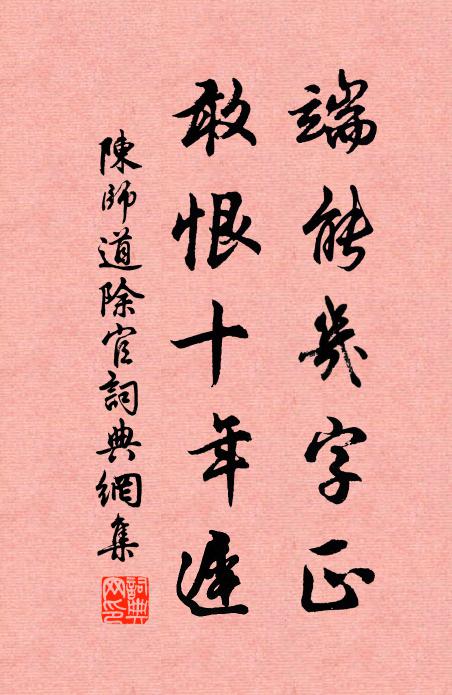 端能幾字正
敢恨十年遲
陳師道除官詞典網集
詞典網印